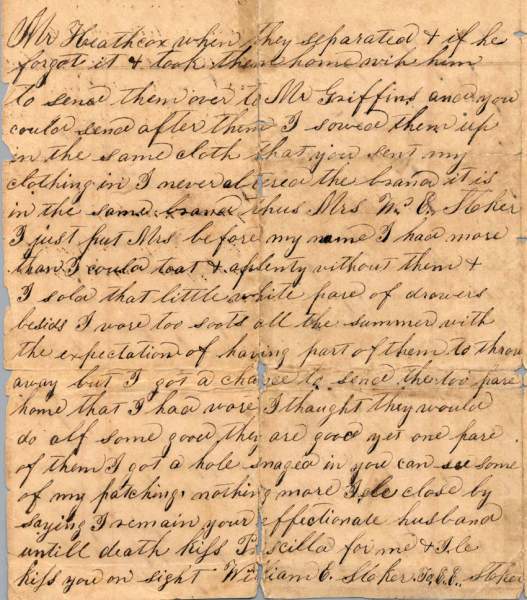 Mr Heathcox when they separated & if he
forgot it & took them home with him
to send them over to Mr Griffins and you
could send after them I sowed them up
in the same cloth that you sent my
clothing in I never altered the brand it is
in the same brand thus Mrs Wm E. Stoker
I just put Mrs before my name I had more
than I could toat & aplenty without them &
I sold that little white pare of drowers
besids I wore too soots all the summer with
the expectation of having part of them to throw
away but I got a chance to send the too pare
home that I had wore I thought they would
do alf some good they are good yet one pare
of them I got a hole snaged in you can see some
of my patching nothing more Ile close by
saying I remain your effectionate husband
untill death kiss Priscilla for me & Ile
kiss you on sight William E. Stoker To E. E. Stoker